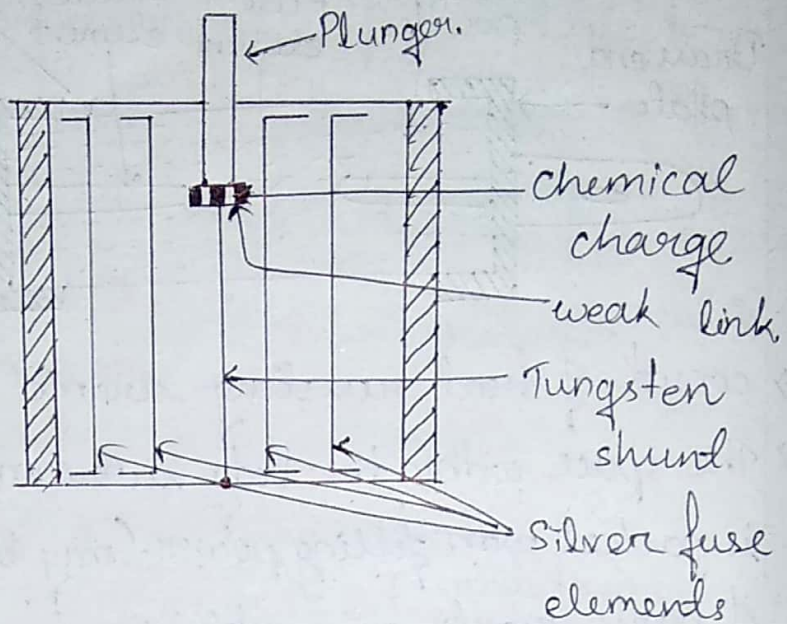 Plunger.
chemical
charge
weak link
Tungsten
shunt
Silver fuse
elements